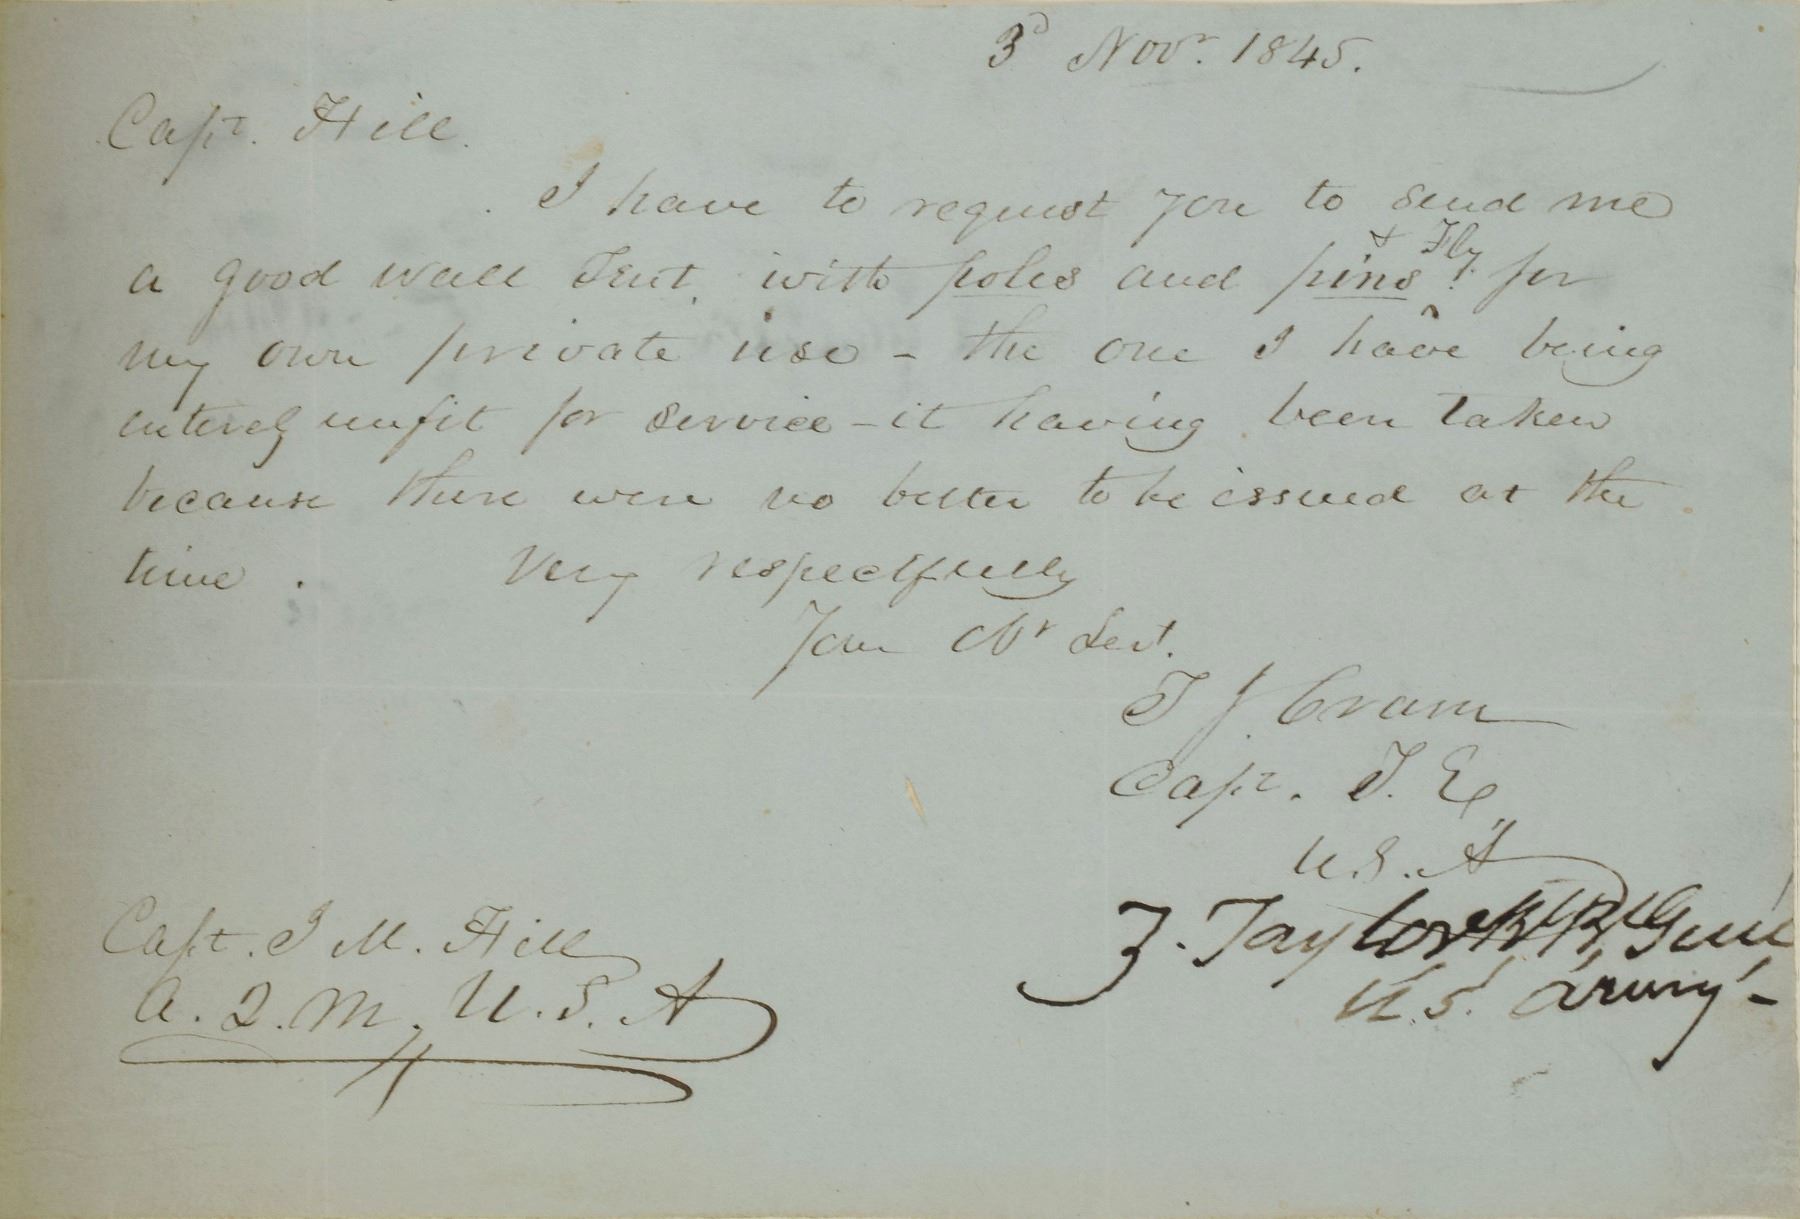 3d Novr. 1845.
Capt. Hill.
I have to request you to send me
a good wall Tent, with poles and pins & Fly. for
my own private use - the one I have being
enterely unfit for service - it having been taken
because there were no better to be issued at the
time. Very respectfully
Your Obt Servt.
T J Cram
Capt. T. E.
U.S.A
Z. Taylor Bt Br Genl
U.S. Army -
Capt. J M. Hill
A. Q. M. U. S. A